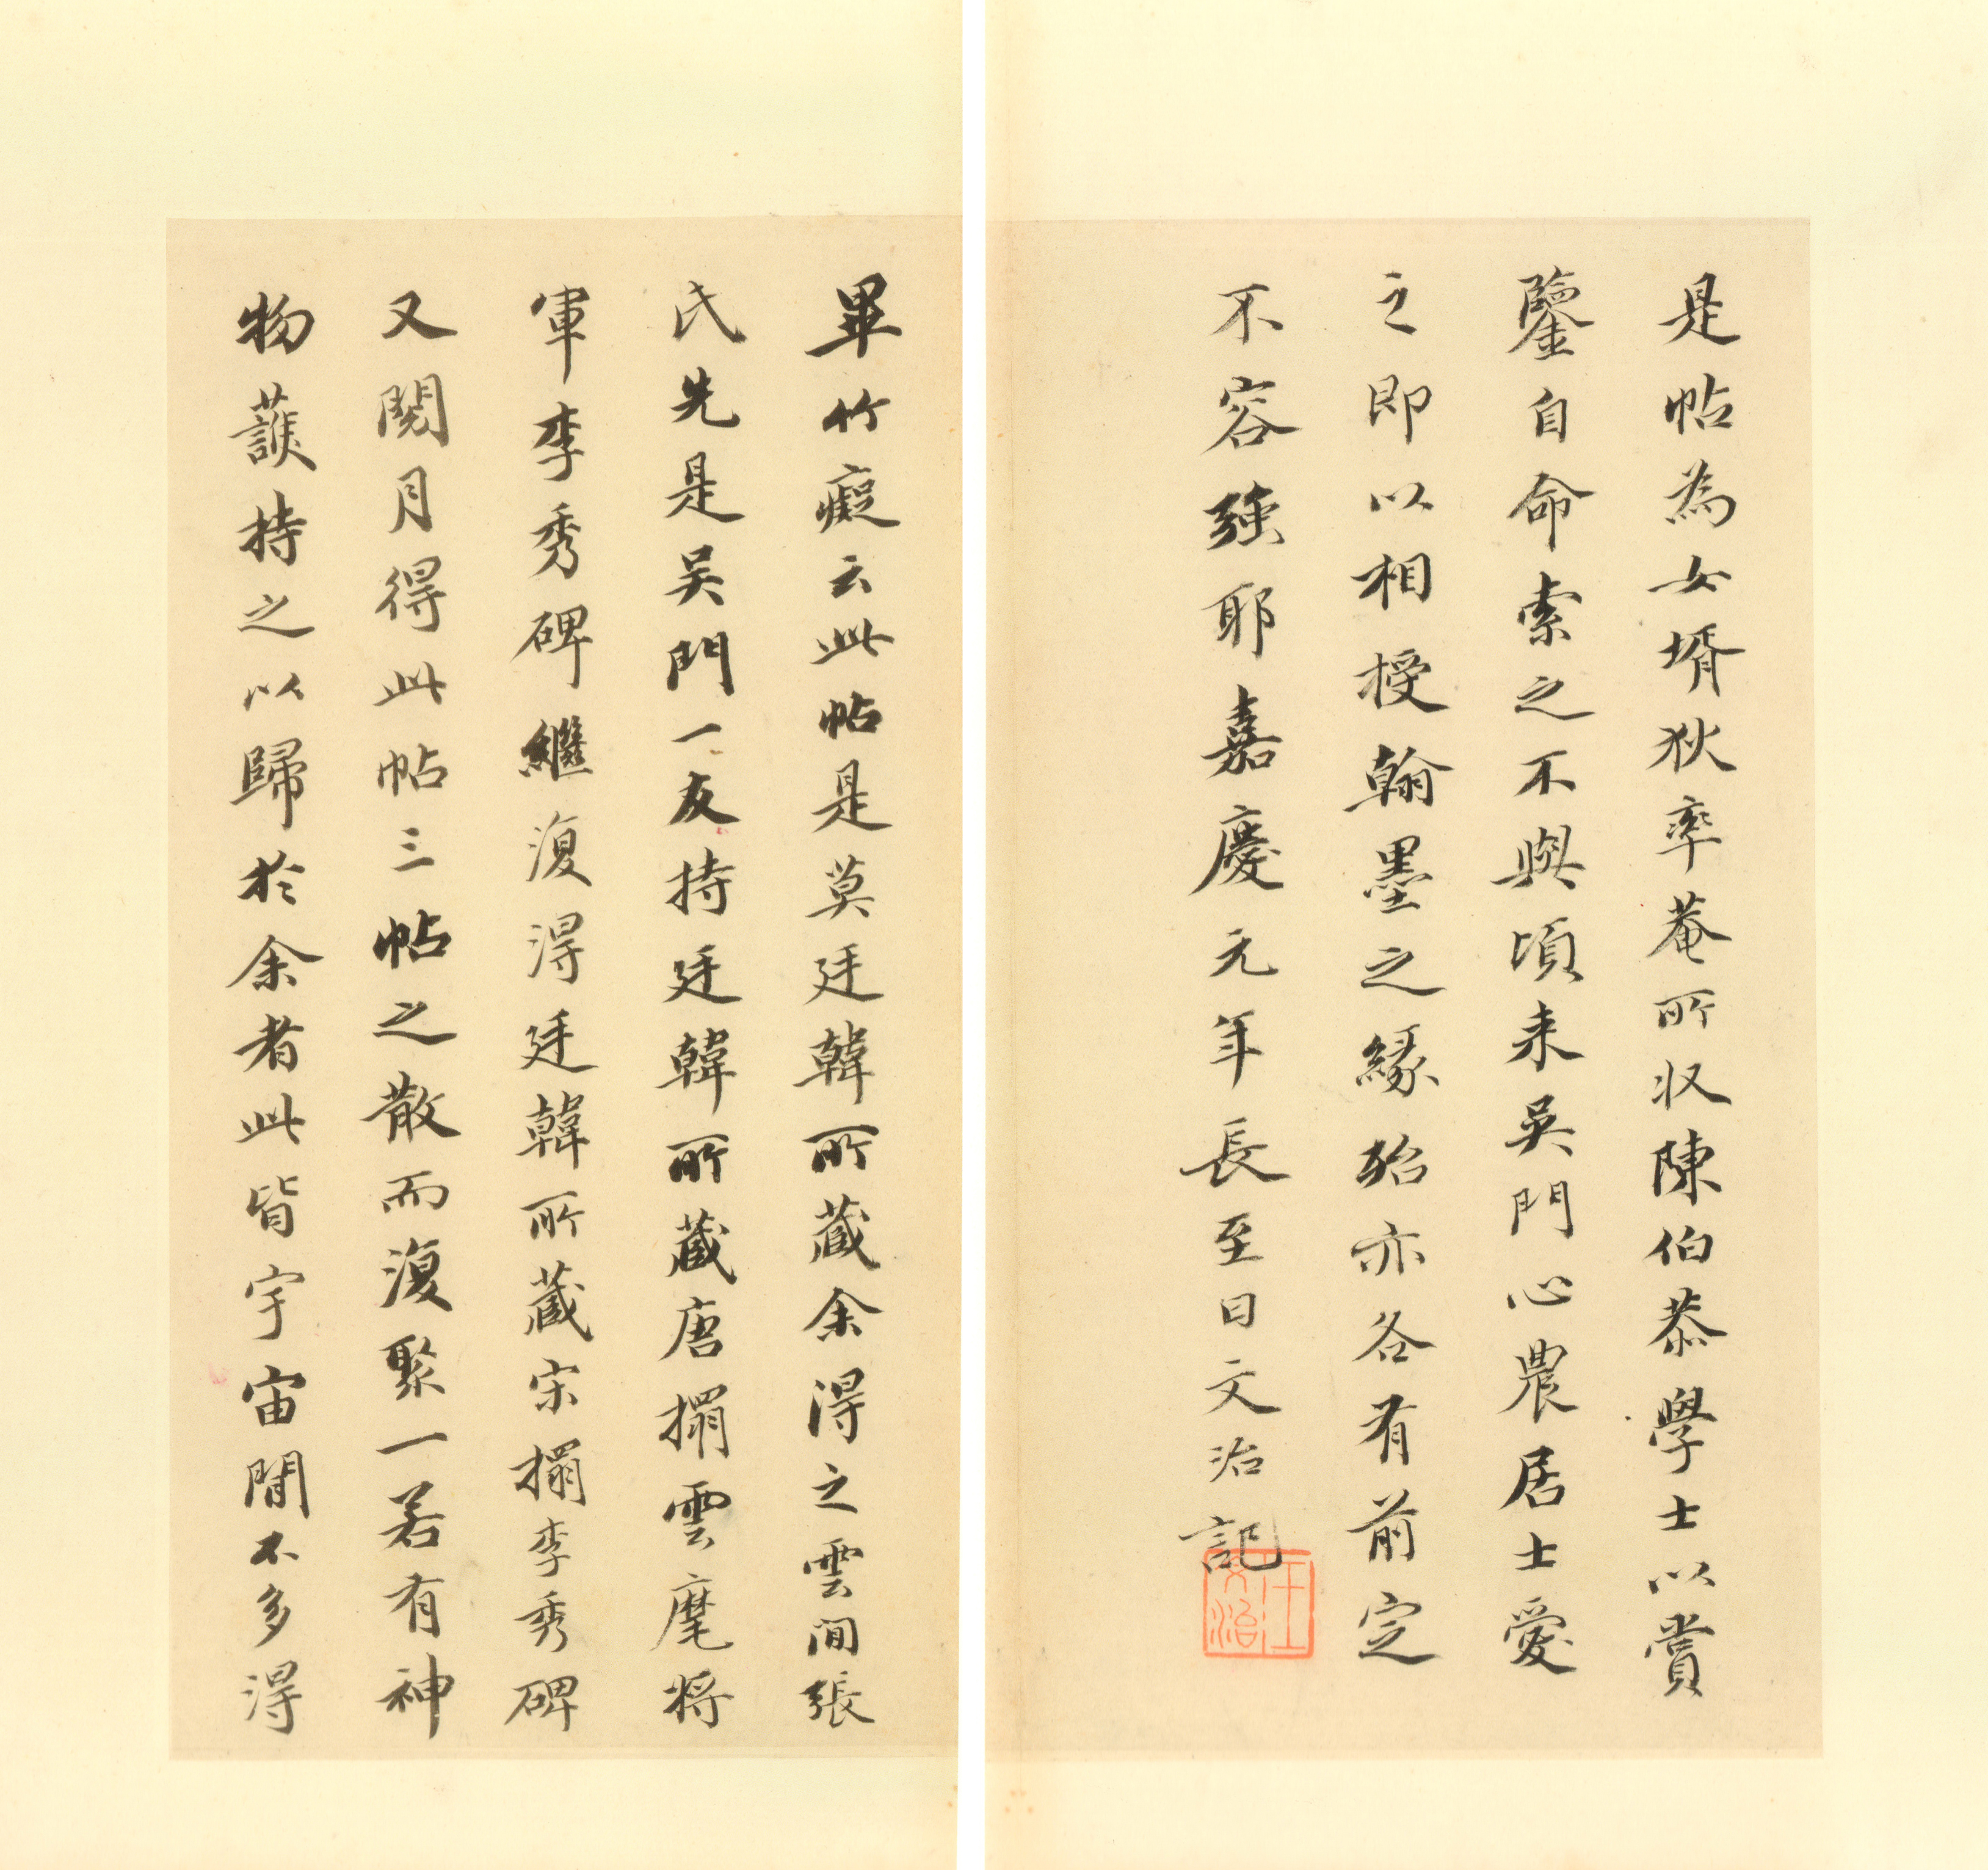 是帖為女壻狄率菴所收陳伯恭學士以賞
鑒自命索之不與頃来吳門心農居士愛
之即以相授翰墨之緣殆亦各有前定
不容強耶嘉慶元年長至日文治記
王文治
畢竹癡云此帖是莫廷韓所藏余得之雲間張
氏先是吴門一友持廷韓所藏唐搨雲麾将
軍李秀碑繼復得廷韓所藏宋搨李秀碑
又閱月得此帖三帖之散而復聚一若有神
物護持之以歸於余者此皆宇宙間不多得